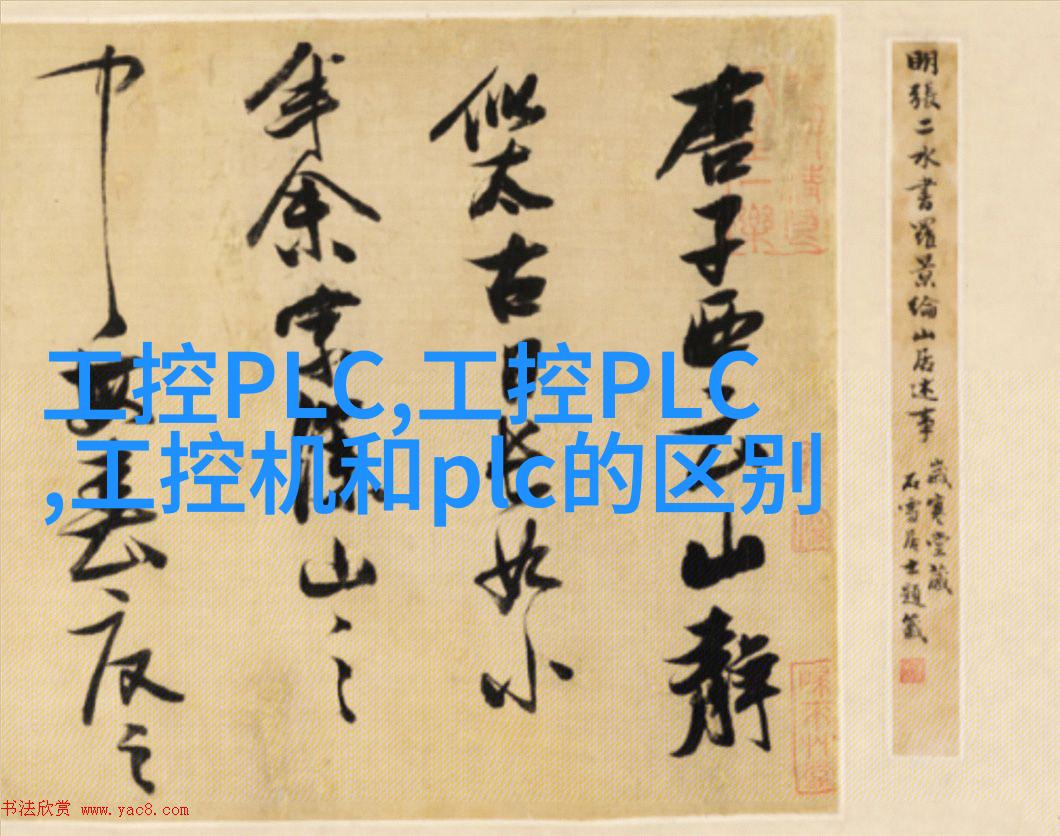 明張二水書羅景綸山居述事
歲寒堂藏
石雪居士題籤
唐子西云山靜
似太古日長如小
年余家深山之
中每春夏之
工控PLC,工控PLC
,工控机和plc的区别
书法欣赏 www.yac8.com